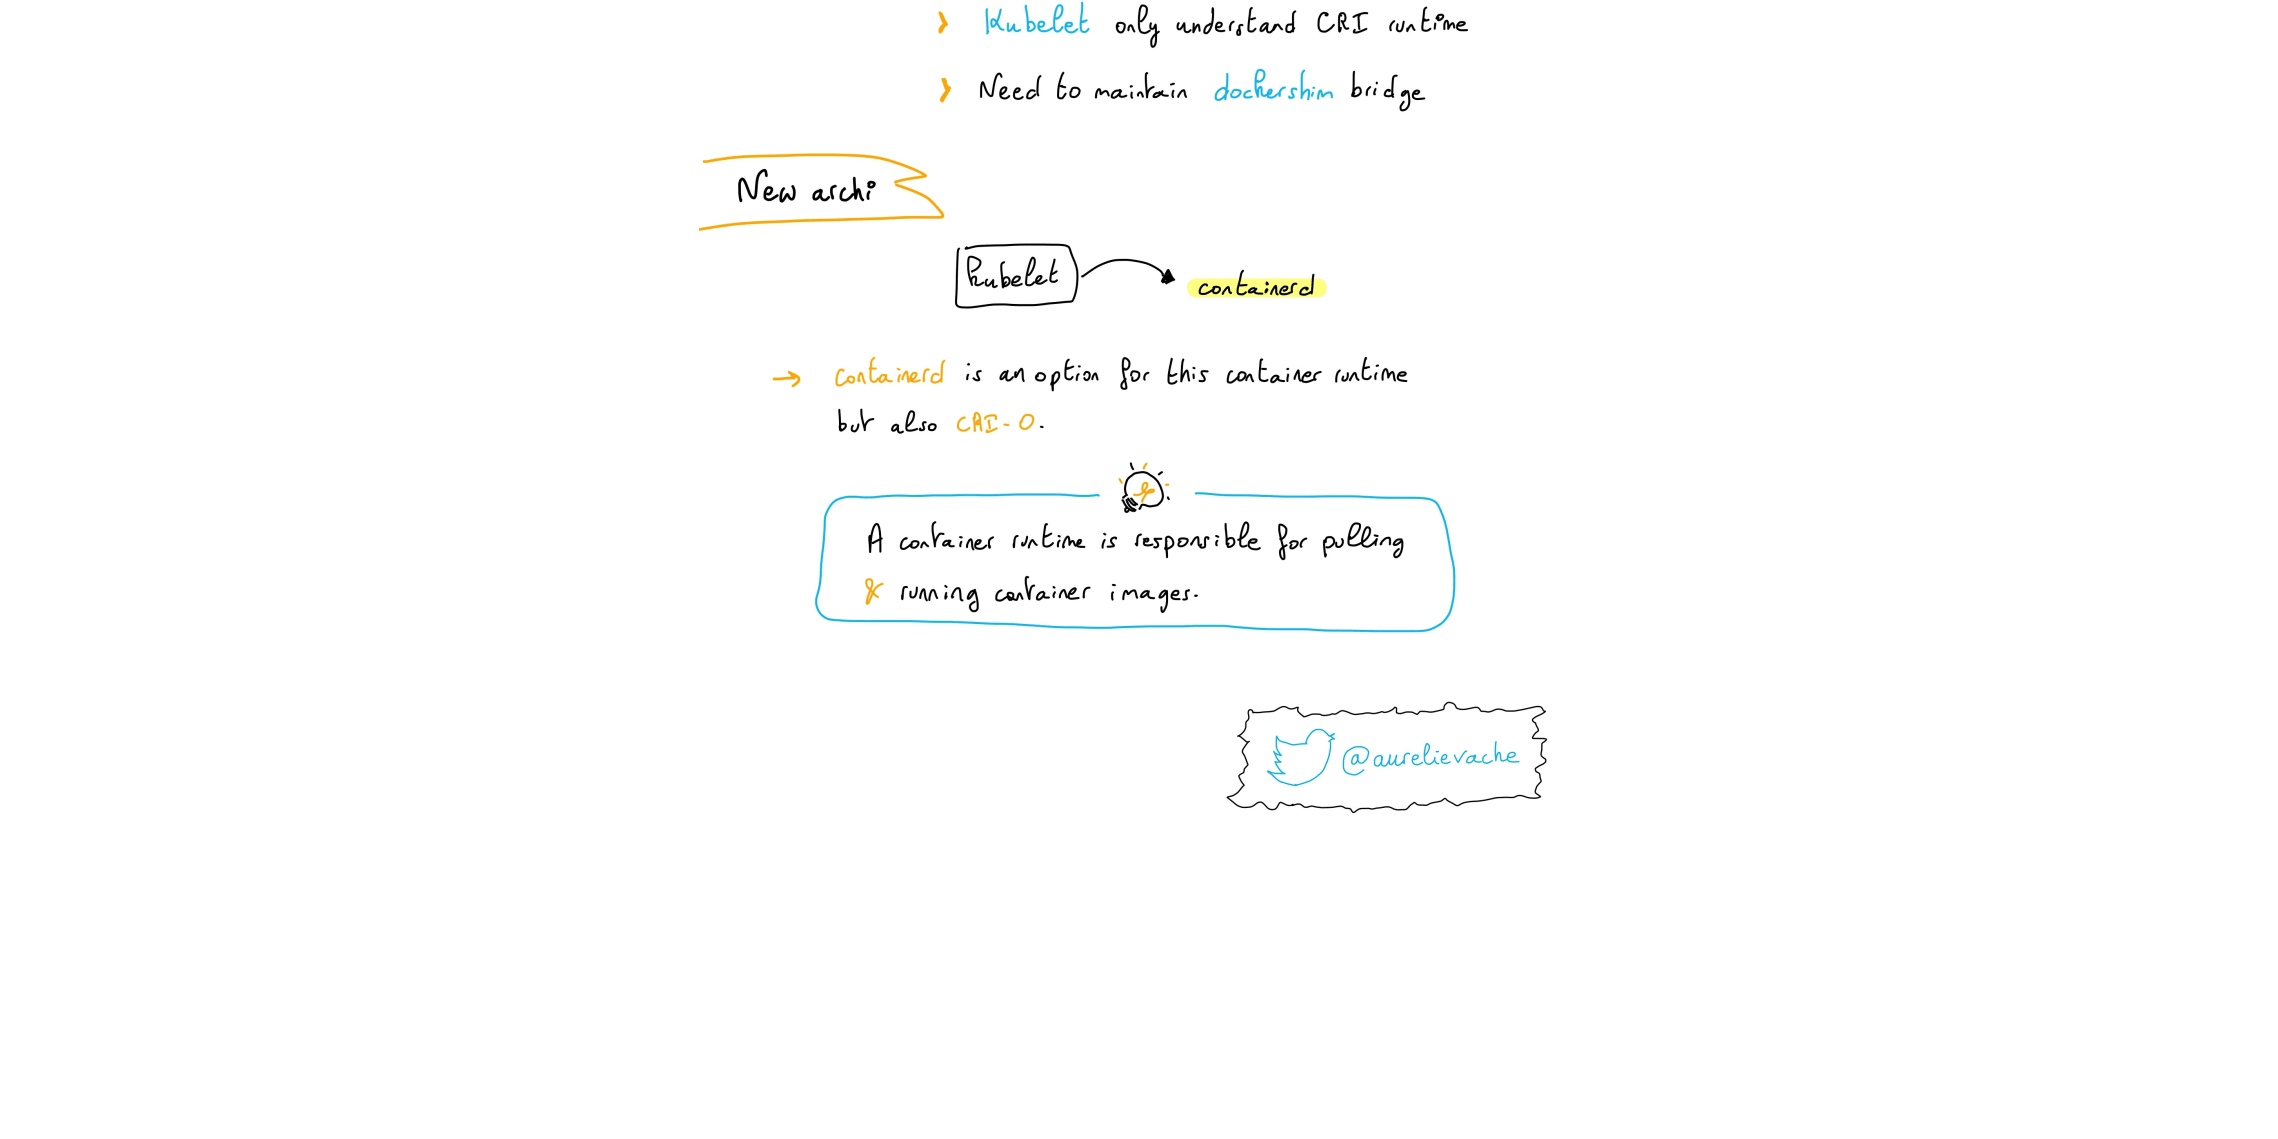 › Kubelet only understand CRI runtime
› Need to maintain dockershim bridge
New archi
kubelet
containerd
→ containerd is an option for this container runtime
but also CRI-O.
A container runtime is responsible for pulling
& running container images.
@aurelievache